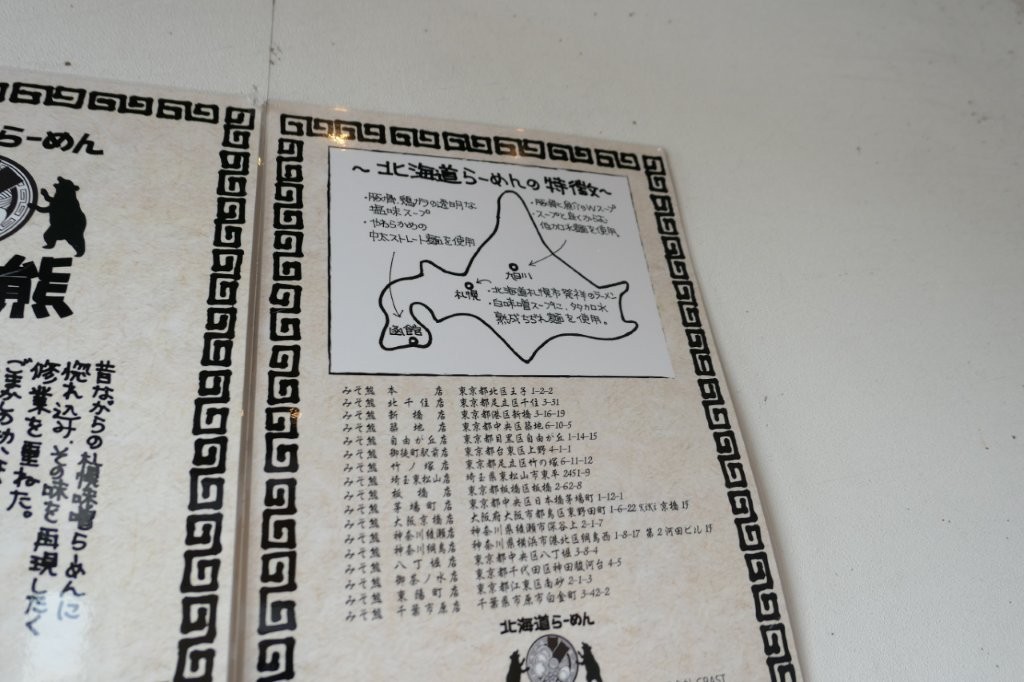 らーめん
熊
昔ながらの札幌味噌らーめんに
惚れ込み、その味を再現したく
修業を重ねた。
～北海道らーめんの特徴～
・豚骨、鶏ガラの透明な
塩味スープ
・やわらかめの
中太ストレート麺を使用
・豚骨と魚介のWスープ
・スープと良くからむ
低加水麺を使用。
旭川
札幌
・北海道札幌市発祥のラーメン
・白味噌スープに、多加水
熟成ちぢれ麺を使用。
函館
みそ熊 本店 東京都北区王子 1-2-2
みそ熊 北千住店 東京都足立区千住 3-31
みそ熊 新橋店 東京都港区新橋 3-16-19
みそ熊 築地店 東京都中央区築地 6-10-5
みそ熊 自由が丘店 東京都目黒区自由が丘 1-14-15
みそ熊 御徒町駅前店 東京都台東区上野 4-1-1
みそ熊 竹ノ塚店 東京都足立区竹の塚 6-11-12
みそ熊 埼玉東松山店 埼玉県東松山市東平 2451-9
みそ熊 板橋店 東京都板橋区板橋 2-62-8
みそ熊 茅場町店 東京都中央区日本橋茅場町 1-12-1
みそ熊 大阪京橋店 大阪府大阪市都島区東野田町 1-6-22 KiKi 京橋 1F
みそ熊 神奈川綾瀬店 神奈川県綾瀬市深谷上 2-1-7
みそ熊 神奈川綱島店 神奈川県横浜市港北区綱島西 1-8-17 第2河田ビル 1F
みそ熊 八丁堀店 東京都中央区八丁堀 3-8-4
みそ熊 御茶ノ水店 東京都千代田区神田駿河台 4-5
みそ熊 東陽町店 東京都江東区南砂 2-1-3
みそ熊 千葉市原店 千葉県市原市白金町 3-42-2
北海道らーめん